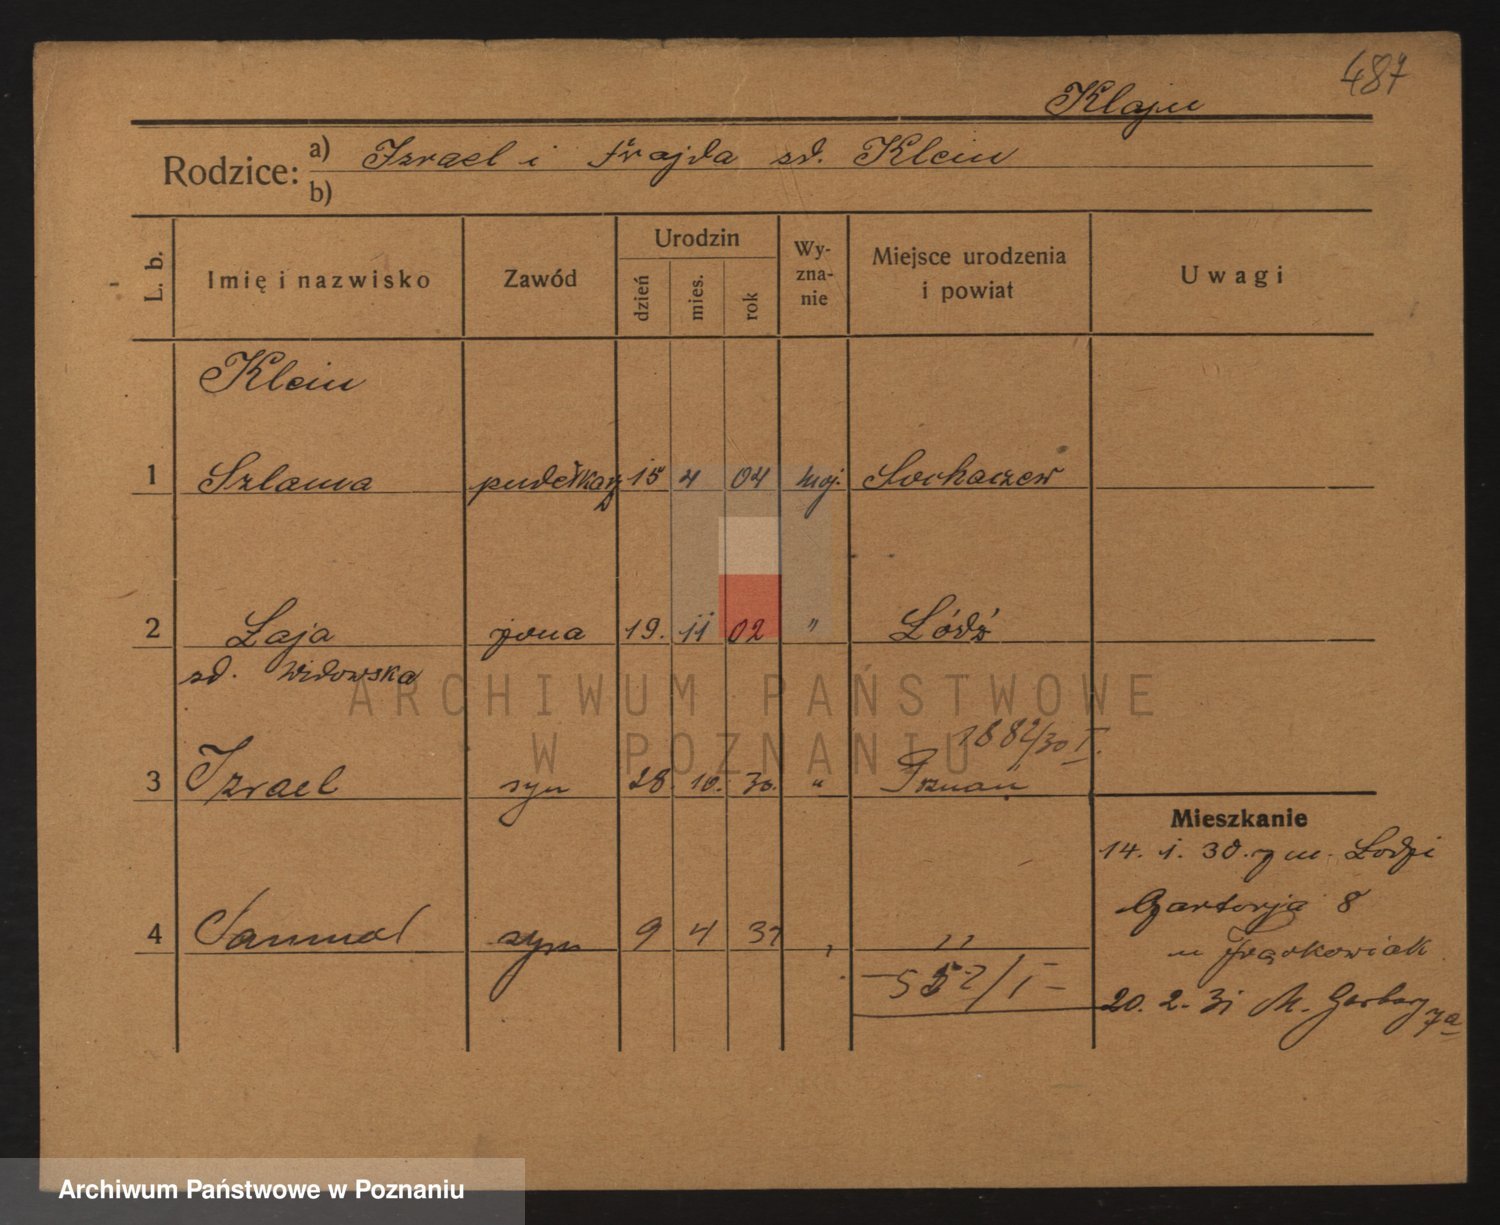 487
Klajn
Rodzice: a) Izrael i Frajda zd. Klein
b)
L. b. Imię i nazwisko Zawód Urodzin dzień mies. rok Wy-zna-nie Miejsce urodzenia i powiat Uwagi
Klein
1 Szlama pudełkarz 15 4 04 moj. Sochaczew
2 Łaja żona 19. 11 02 " Łódź
zd. Widowska
1882/30 I.
3 Izrael syn 28. 10. 30. " Poznań
Mieszkanie
14. 1. 30. z m. Łodzi
8
4 Samuel syn 9 4 32 " "
u Frąckowiak
552/I
20. 2. 31 M. Garbary 7a
ARCHIWUM PAŃSTWOWE
W POZNANIU
Archiwum Państwowe w Poznaniu